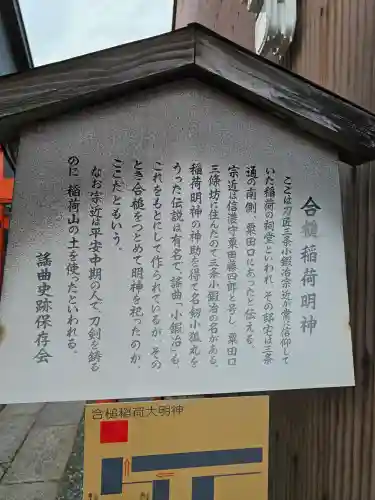 合槌稲荷明神
ここは刀匠三条小鍛冶宗近が常に信仰して
いた稲荷の祠堂といわれ、その邸宅は三条
通の南側、粟田口にあったと伝える。
宗近は信濃守粟田藤四郎と号し、粟田口
三條坊に住んだので三条小鍛冶の名がある。
稲荷明神の神助を得て名剣小狐丸を
うった伝説は有名で、謡曲「小鍛冶」も
これをもとにして作られているが、その
とき合槌をつとめて明神を祀ったのが
ここだともいう。
なお宗近は平安中期の人で、刀剣を鋳る
のに、稲荷山の土を使ったといわれる。
謡曲史跡保存会
合槌稲荷大明神